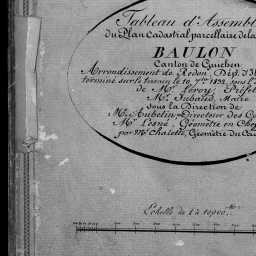 Tableau d'Assembl
du Plan Cadastral parcellaire de la
BAULON
Canton de Guichen
Arrondissement de Redon, Dépt. d'I
terminé sur le terrain le 10 7bre 1832, sous l'
de Mr. Leroy, Préfet
Mr. Jubault, Maire
sous la Direction de
Mr. Aubelin, Directeur des Co
Mr. Lesné, Géomètre en Chef
par Mr. Chalette, Géomètre du Ca
Echelle de 1 à 10000